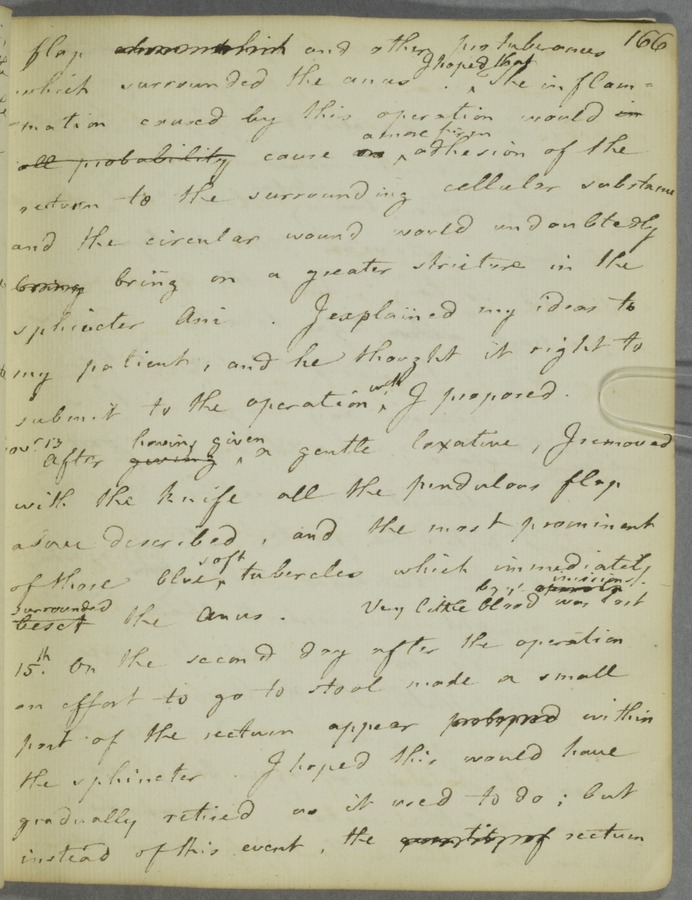 166
flap and other protuberances
which surrounded the anus . I hoped that the inflam=
=mation caused by this operation would in
all probability cause an a more firm adhesion of the
rectum to the surrounding cellular substance
and the circular wound would undoubtedly
bring bring on a greater stricture in the
sphincter Ani . I explained my ideas to
my patient, and he thought it right to
submit to the operation wch I proposed.
Novr 13 After giving having given a gentle laxative, I removed
with the knife all the pendulous flap
above described, and the most prominent
of those blue soft tubercles which immediately
beset surrounded the anus. Very little blood was lost by ye incisions.
15th. On the second day after the operation
an effort to go to stool made a small
part of the rectum appear within
the sphincter . I hoped this would have
gradually retired as it used to do ; but
instead of this event, the rectum